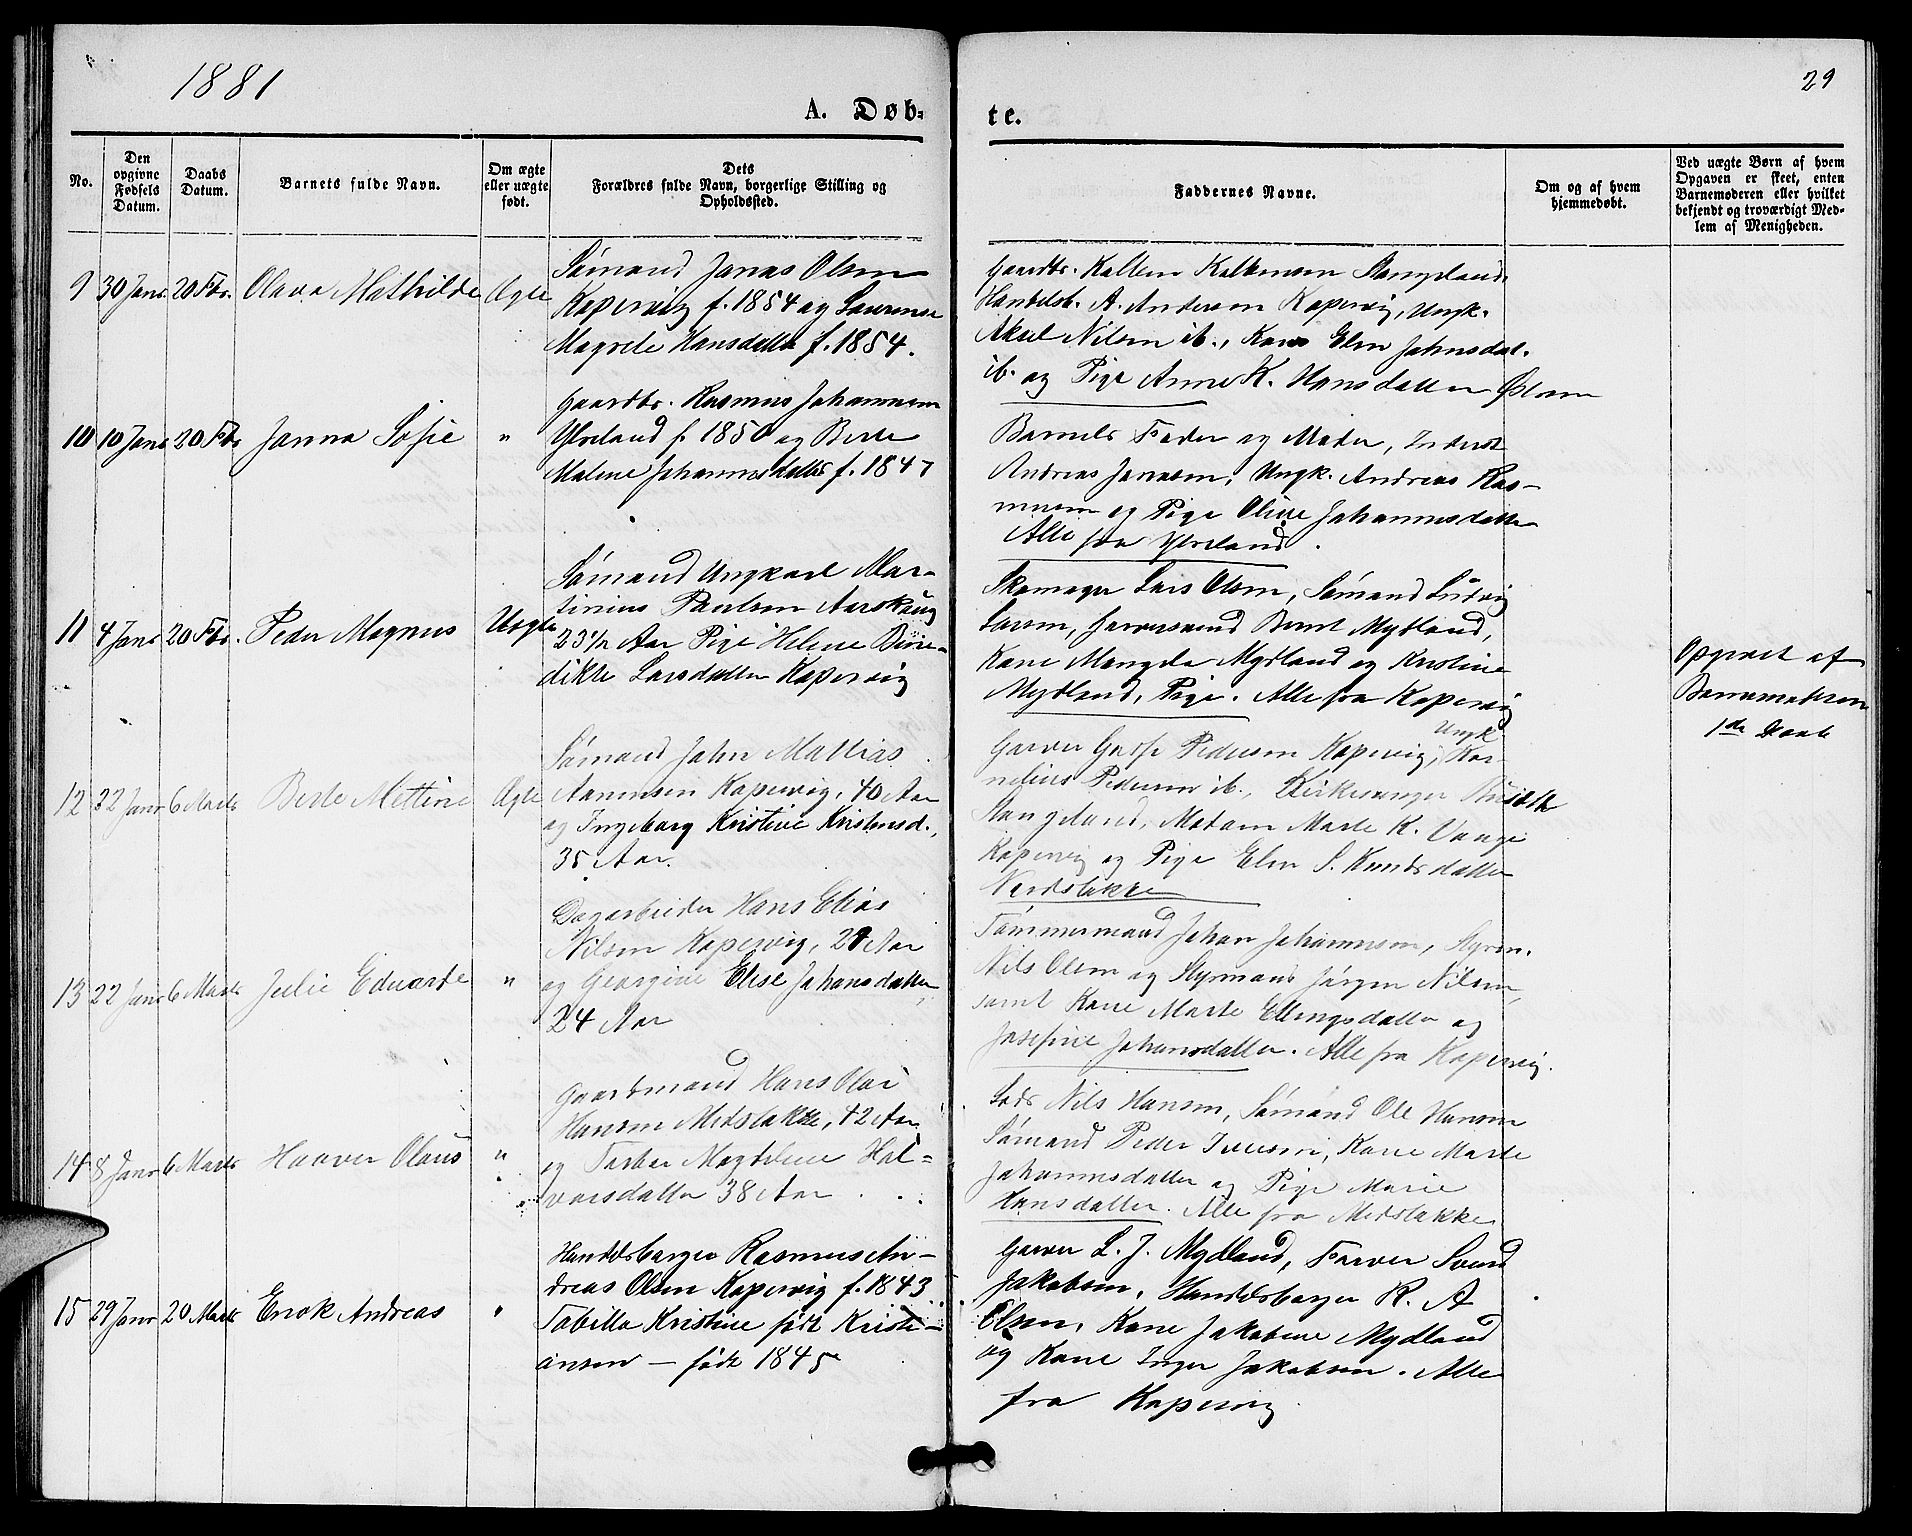 1881
29
A. Døb-
te.
No.
Den
opgivne
Fødsels
Datum.
Daabs
Datum.
Barnets fulde Navn.
Om ægte
eller uægte
født.
Dets
Forældres fulde Navn, borgerlige Stilling og
Opholdssted.
Faddernes Navne.
Om og af hvem
hjemmedøbt.
Ved uægte Børn af hvem
Opgaven er skeet, enten
Barnemoderen eller hvilket
bekjendt og troværdigt Med-
lem af Menigheden.
9 30 Janr 20 Fbr. Olava Mathilde Ægte
Sømand Jonas Olsen
Kopervig f. 1854 og Laurense
Magrete Hansdatter f. 1854.
Gaardbr. Kolben Kolbensen Stangeland,
Handelsb. A. Andersen Kopervig, Ungk.
Aksel Nilsen ib., Kone Elen Johnsdat.
ib. og Pige Anne K. Hansdatter
10 10 Janr 20 Fbr Janna Sofie "
Gaardbr. Rasmus Johannesen
Ytreland f. 1850 og Berte
Malene Johannesdatter f. 1847
Barnets Fader og Moder, Inderst
Andreas Jonasen, Ungk. Andreas Ras-
musen og Pige Oline Johannesdatter
Alle fra Ytreland.
11 4 Janr 20 Fbr. Peder Magnus Uægte
Sømand Ungkarl Mar-
tinius Paulsen Aarskaug
23 1/2 Aar Pige Helene Bene-
dikte Larsdatter Kopervig
Skomager Lars Olsen, Sømand Ludvig
Larsen, Garversvend Bernt Mydland,
Kone Mangela Mydland og Kristine
Mydland, Pige. Alle fra Kopervig
Opgivet af
Barnemoderen
1ste Daab
12 22 Janr 6 Marts Berte Mettine Ægte
Sømand John Mathias
Aanensen Kopervig, 40 Aar
og Ingeborg Kristine Kristensd.,
35 Aar.
Ungk
Garver Pedersen Kopervig, Kor-
nelius Pedersen ib., Kirkesanger
Stangeland, Madam Marte K. Vaage
Kopervig og Pige Elen S. Knudsdatter
13 22 Janr 6 Marts Julie Eduarde "
Dagarbeider Hans Elias
Nilsen Kopervig, 27 Aar
og Georgine Elise Johansdatter,
24 Aar
Tømmermand Johan Johannesen, Styrm.
Nils Olsen og Styrmand Jørgen Nilsen,
samt Kone Marte Ellingsdatter og
Josefine Johansdatter. Alle fra Kopervig.
14 8 Janr 6 Marts Haaver Olaus "
Gaardmand Hans Olai
Hansen Medsløkke, 42 Aar
og Torbor Magdelene Hal-
vorsdatter 38 Aar
Lods Nils Hansen, Sømand Ole Hansen
Sømand Peder Iversen, Kone Marte
Johannesdatter og Pige Marie
Hansdatter. Alle fra Medsløkke
15 29 Janr 20 Marts Enok Andreas "
Handelsborger Rasmus An-
dreas Olsen Kopervig f. 1843
Tobilla Kristine født Kristi-
ansen — født 1845
Garver L. J. Mydland, Farver Svend
Jakobsen, Handelsborger R. A
Olsen, Kone Jakobine Mydland
og Kone Inger Jakobsen. Alle
fra Kopervig